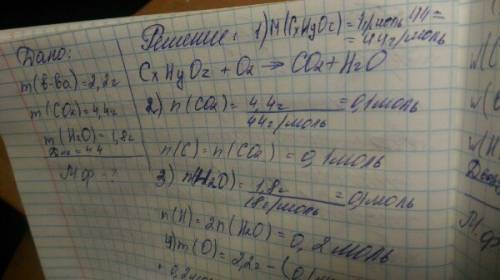 Дано:
m(в-ва)=2,2г
m(CO₂)=4,4г
m(H₂O)=1,8г
М.ф.-?
Решение: 1) M(CxHyOz)=1г/моль·44=
=44г/моль
CxHyOz + O₂ → CO₂ + H₂O
2) n(CO₂)= 4,4г / 44г/моль =0,1моль
n(C)=n(CO₂)=0,1моль
3) n(H₂O)= 1,8г / 18г/моль =0,1моль
n(H)=2n(H₂O)=0,2моль
4) m(O)=2,2г-(0,1